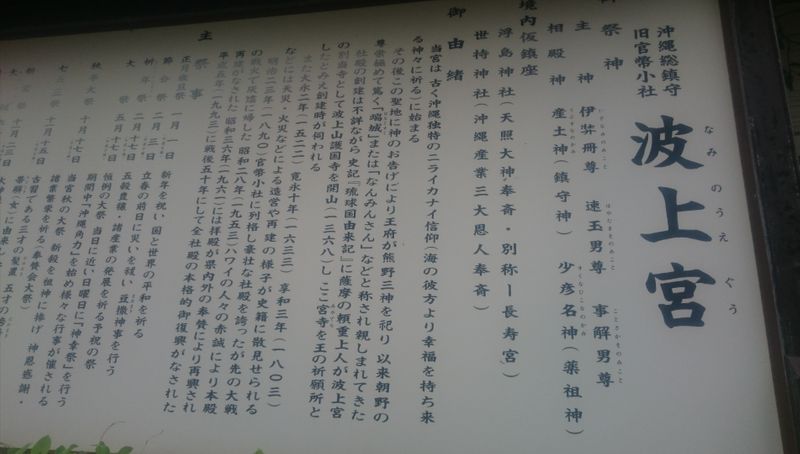 沖縄総鎮守
旧官幣小社
波上宮
なみのうえぐう
御祭神
主神 伊弉冊尊 速玉男尊 事解男尊
いざなみのみこと はやたまをのみこと ことさかをのみこと
相殿神 産土神(鎮守神) 少彦名神(薬祖神)
うぶすなのかみ すくなひこなのかみ
境内仮鎮座
浮島神社(天照大神奉斎・別称ー長寿宮)
世持神社(沖縄産業三大恩人奉斎)
御由緒
当宮は古く沖縄独特のニライカナイ信仰(海の彼方より幸福を持ち来
る神々に祈る)に始まる
その後この聖地に神のお告げにより王府が熊野三神を祀り 以来朝野の
尊崇極めて篤く「端城」または「なんみんさん」などと称され親しまれてきた
社殿の創建は不詳ながら 史記『琉球国由来記』に薩摩の頼重上人が波上宮
の別当寺として波上山護国寺を開山(一三六八)し ここ宮寺を王の祈願所と
したとみえ創建時が伺われる
また大永二年(一五二二)寛永十年(一六三三)享和三年(一八〇三)
などには天災・火災などによる造営や再建の様子が史籍に散見せられる
明治二三年(一八九〇)官幣小社に列格し豪壮な社殿を誇ったが先の大戦
の戦火で灰燼に帰した 昭和二八年(一九五三)ハワイの人々の赤誠により本殿
再建がなされ 昭和三六年(一九六一)には拝殿が県内外の奉賛により再興され
平成五年(一九九三)に戦後五十年にして全社殿の本格的御復興がなされた
主祭事
正月歳旦祭 一月一日 新年を祝い 国と世界の平和を祈る
節分祭 二月三日 立春の前日に災いを祓い 豆撒神事を行う
祈年祭 四月十七日 五穀豊穣・諸産業の発展を祈る予祝の祭
例大祭 五月十七日 恒例の大祭 当日に近い日曜日に「神幸祭」を行う
期間中「沖縄角力」を始め様々な行事が催される
秋季大祭 十月十七日 当宮秋の大祭 新穀を祖神に捧げ 神恩感謝・
諸業繁栄を祈る(奉賛会大祭)
七五三祭 十一月十五日 古習である三才の髪置 五才の
帯解(女)に由来し
十一月二三日